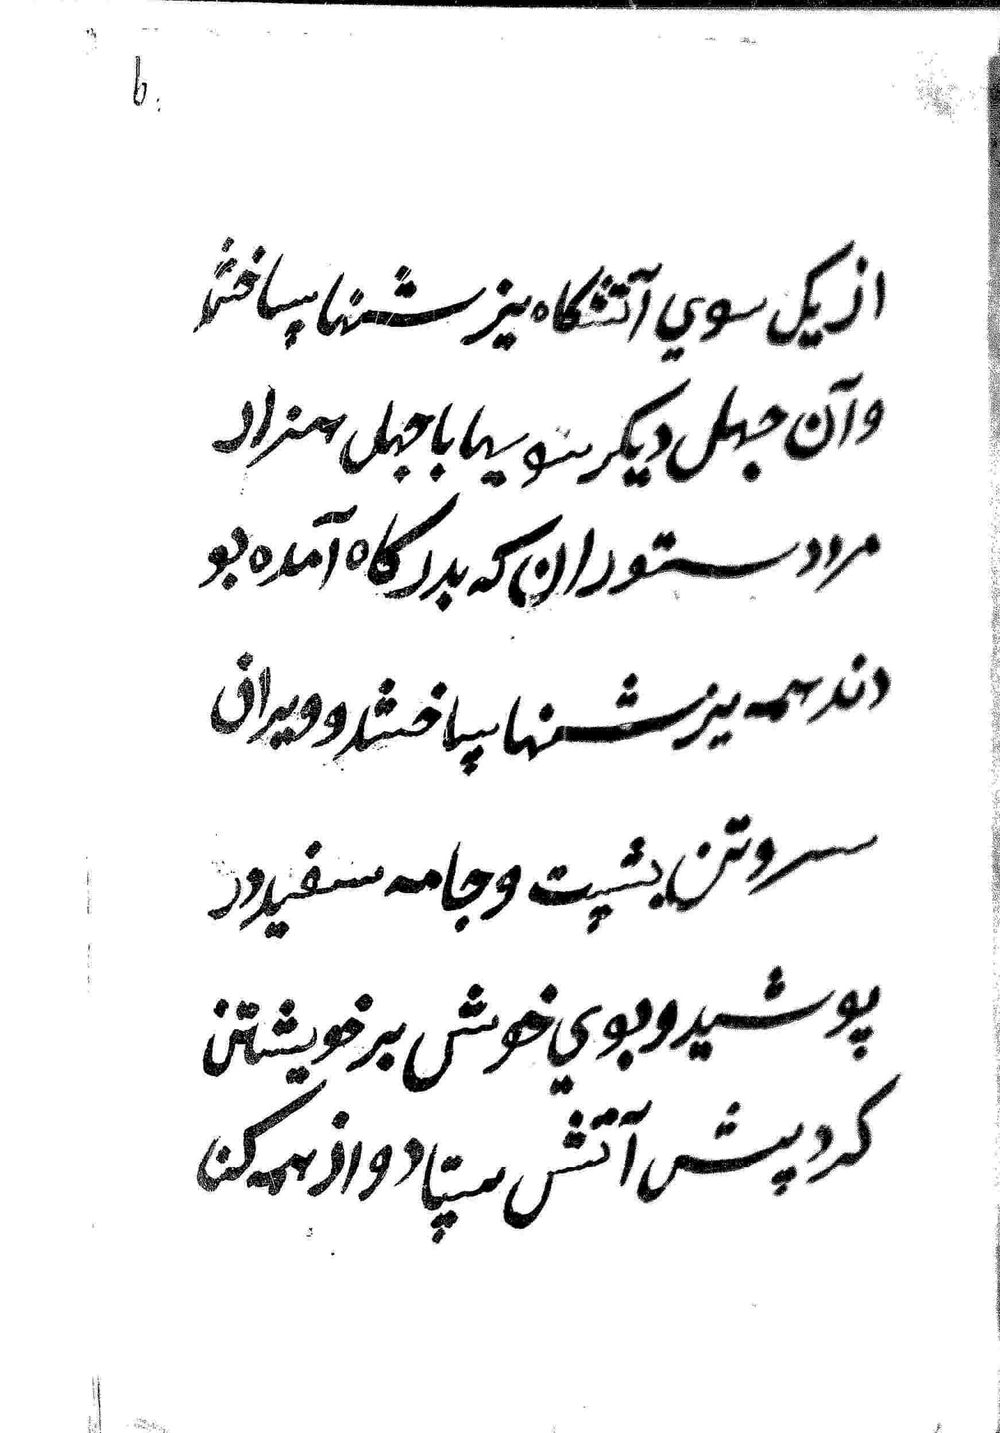 6
از یکی سوي آتشگاه یزشنها بساختند
وآن جهل دیکر سوبیها با جهل هزار
مرد دستوران که بدرکاه آمده بو
دند همه یزشنها بساختند و ویراف
سروتن بشپت و جامه سفید در
پوشید و بوي خوش بر خویشتن
کرد پیش آتش بیپتاد و از همه کنا